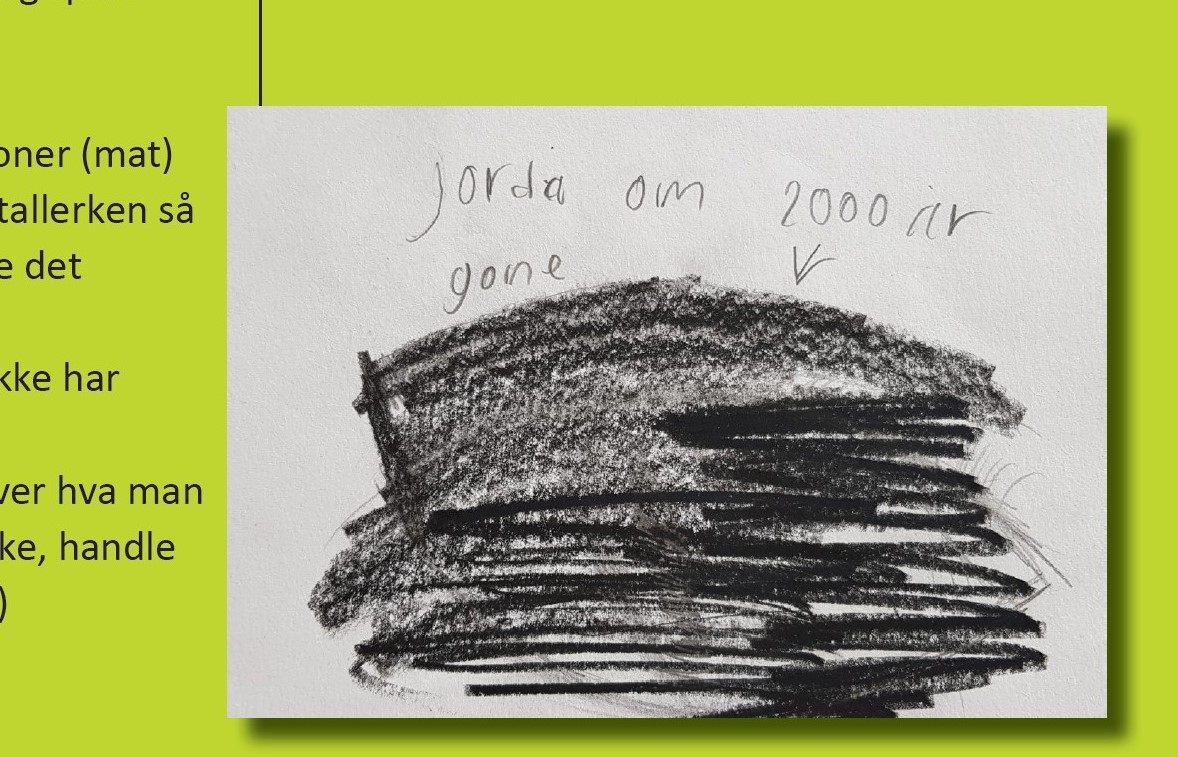 oner (mat)
tallerken så
e det
kke har
ver hva man
ke, handle
)
Jorda om 2000 år
gone